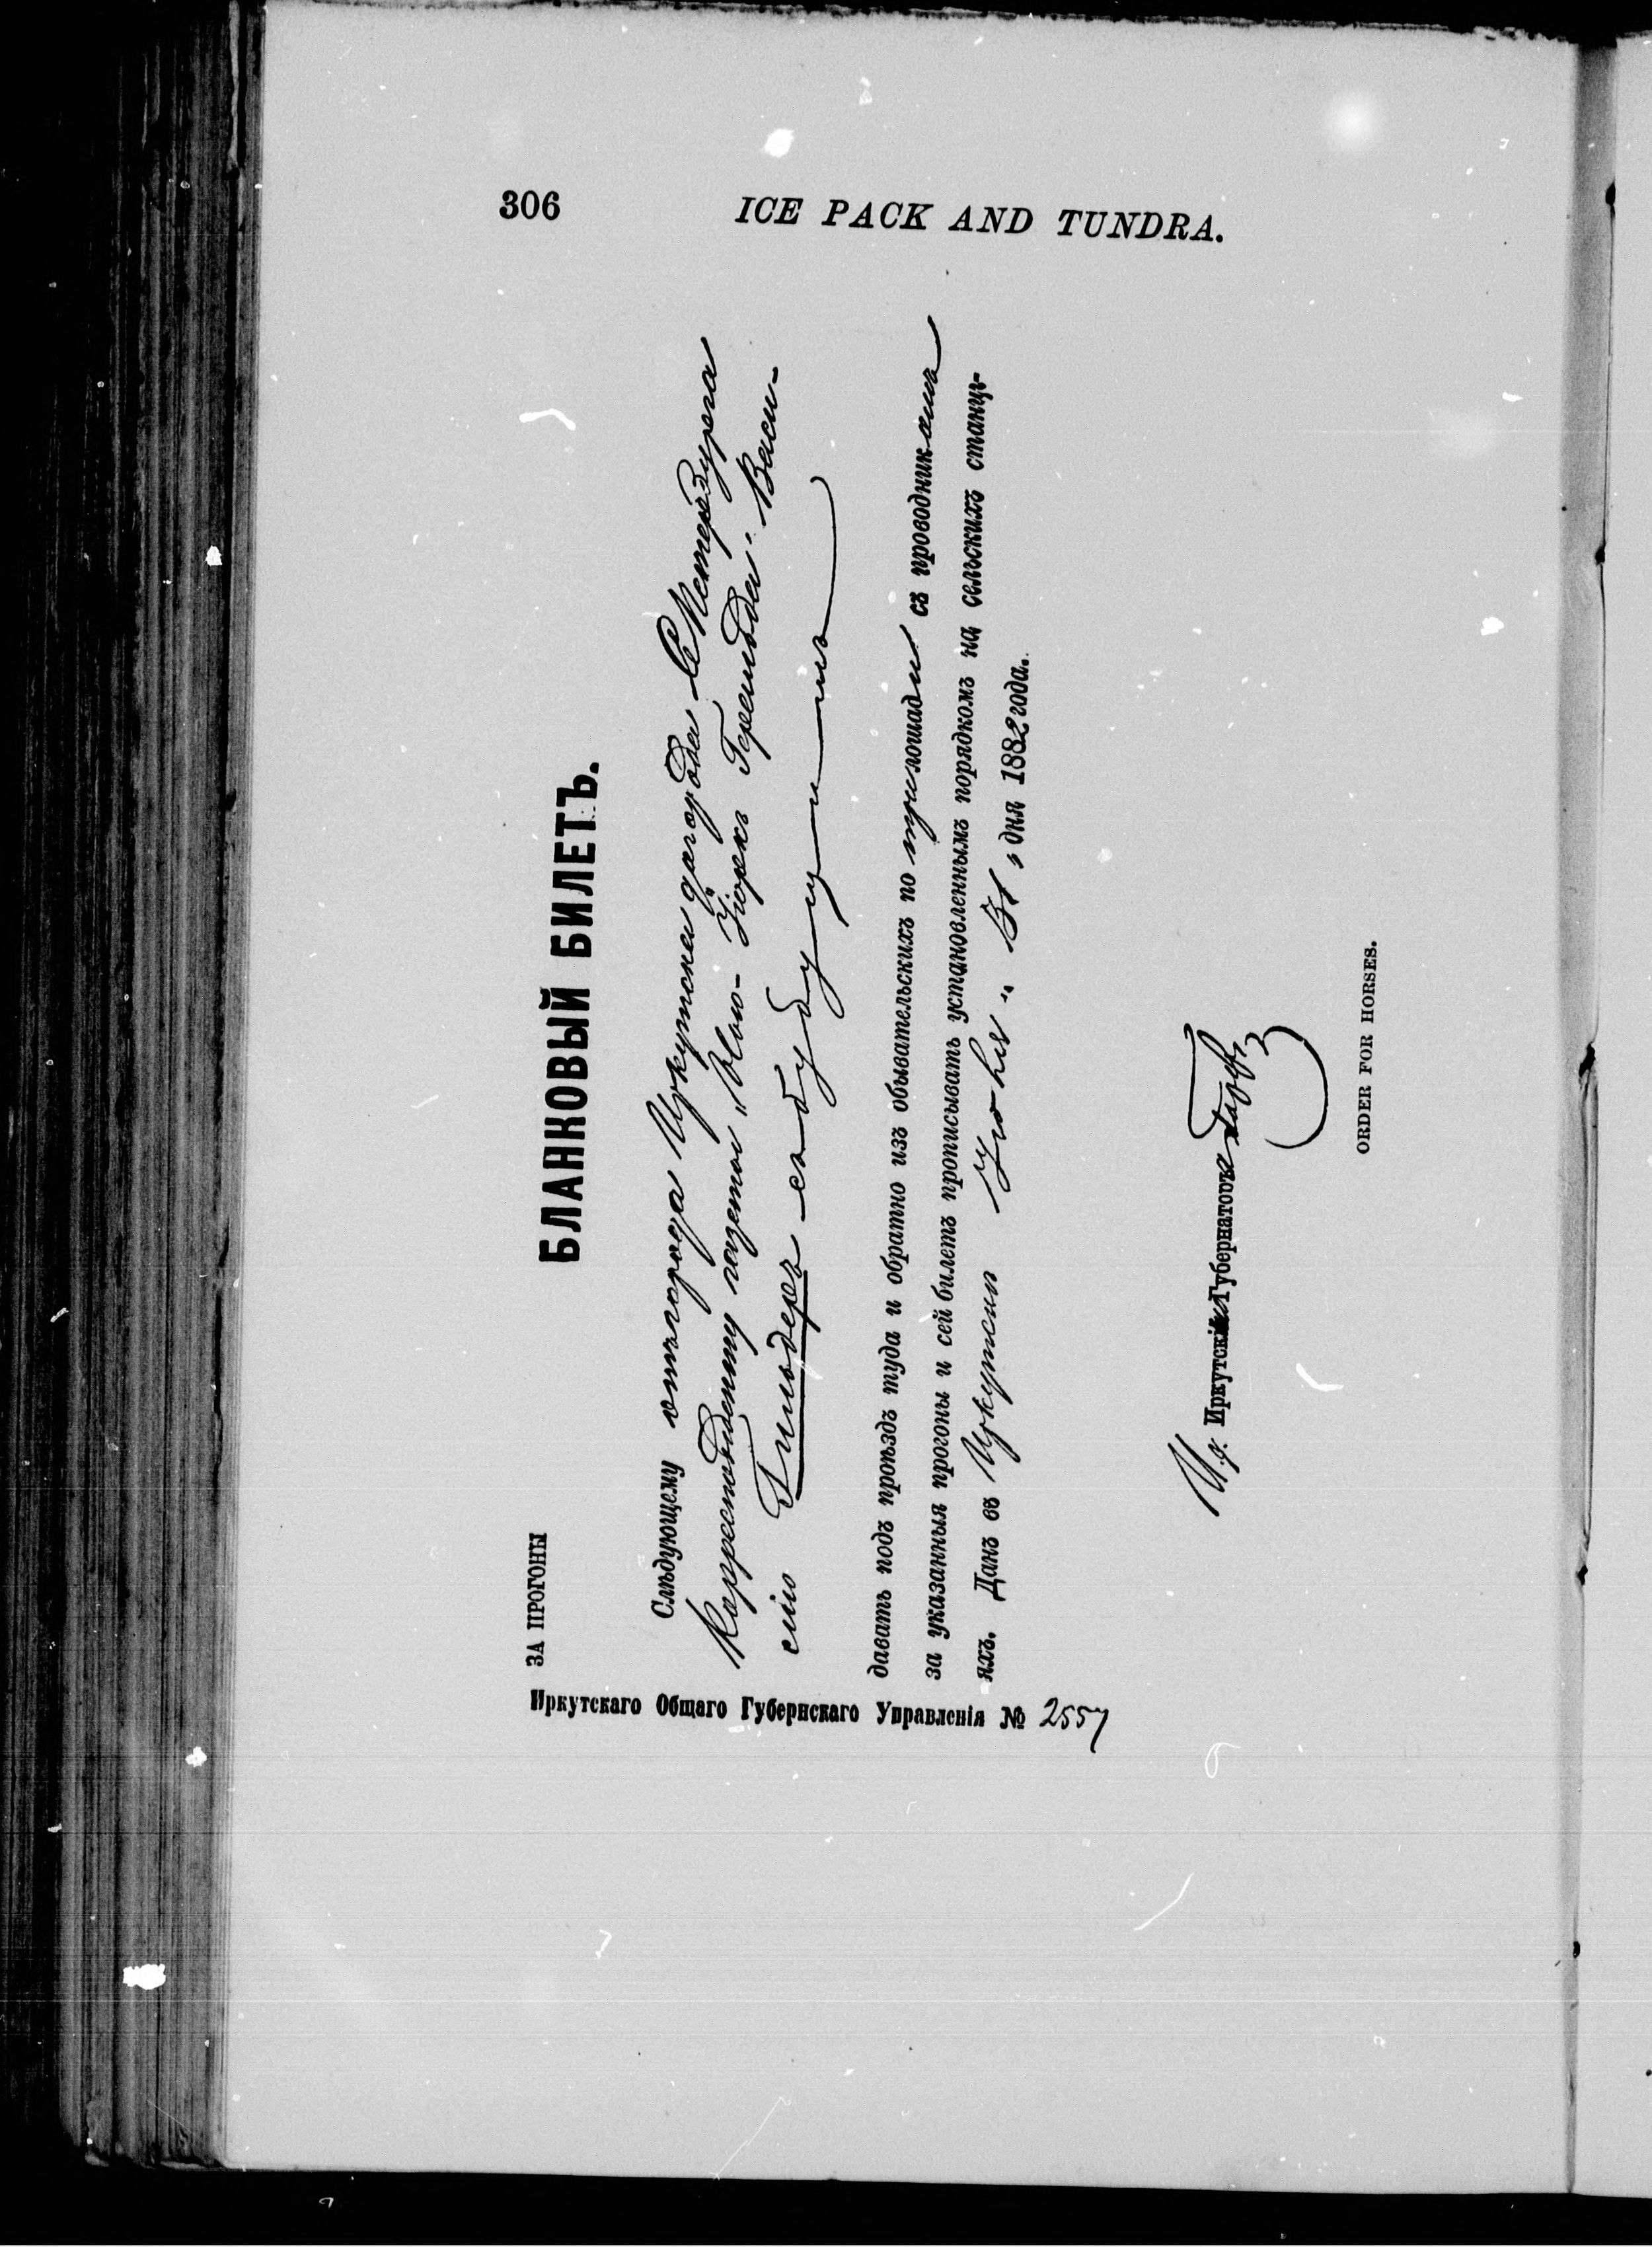 306
ICE PACK AND TUNDRA.
Иркутскаго Общаго Губернскаго Управленія № 2557
ЗА ПРОГОНЫ
БЛАНКОВЫЙ БИЛЕТЪ.
Слѣдующему отъ города Иркутска до города С. Петербурга
Корреспонденту газеты „Нью-Іоркъ Герельдъ" Васи-
лію Гильдеръ съ будущимъ
давать подъ проѣздъ туда и обратно изъ обывательскихъ по три лошади съ проводникамъ
за указанныя прогоны и сей билетъ прописывать установленнымъ порядкомъ на сельскихъ станці-
яхъ. Данъ въ Иркутскѣ Іюня „ 31 „ дня 1882 года.
И. д. Иркутскій Губернаторъ
ORDER FOR HORSES.